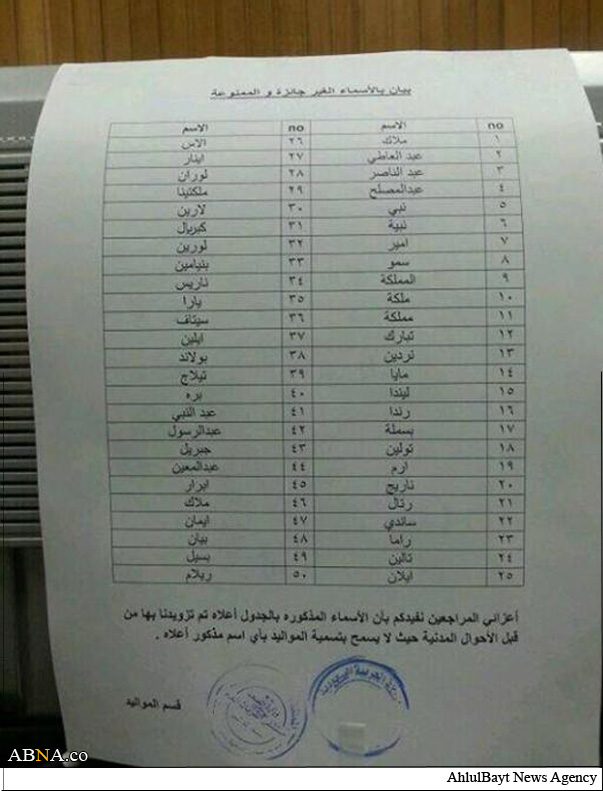 بيان بالأسماء الغير جائزة و الممنوعة
no الاسم no الاسم
١ ملاك ٢٦ الاس
٢ عبد العاطي ٢٧ اينار
٣ عبد الناصر ٢٨ لوران
٤ عبدالمصلح ٢٩ ملكتينا
٥ نبي ٣٠ لارين
٦ نبية ٣١ كبريال
٧ امير ٣٢ لورين
٨ سمو ٣٣ بنيامين
٩ المملكة ٣٤ ناريس
١٠ ملكة ٣٥ يارا
١١ مملكة ٣٦ سيتاف
١٢ تبارك ٣٧ ايلين
١٣ نردين ٣٨ بولاند
١٤ مايا ٣٩ تيلاج
١٥ ليندا ٤٠ بره
١٦ رندا ٤١ عبد النبي
١٧ بسملة ٤٢ عبدالرسول
١٨ تولين ٤٣ جبريل
١٩ ارم ٤٤ عبدالمعين
٢٠ ناريج ٤٥ ابرار
٢١ رتال ٤٦ ملاك
٢٢ ساندي ٤٧ ايمان
٢٣ راما ٤٨ بيان
٢٤ تالين ٤٩ بسيل
٢٥ ايلان ٥٠ ريلام
أعزائي المراجعين نفيدكم بأن الأسماء المذكوره بالجدول أعلاه تم تزويدنا بها من
قبل الأحوال المدنية حيث لا يسمح بتسمية المواليد بأي اسم مذكور أعلاه .
العربية السعودية
قسم المواليد
ABNA.co
AhlulBayt News Agency